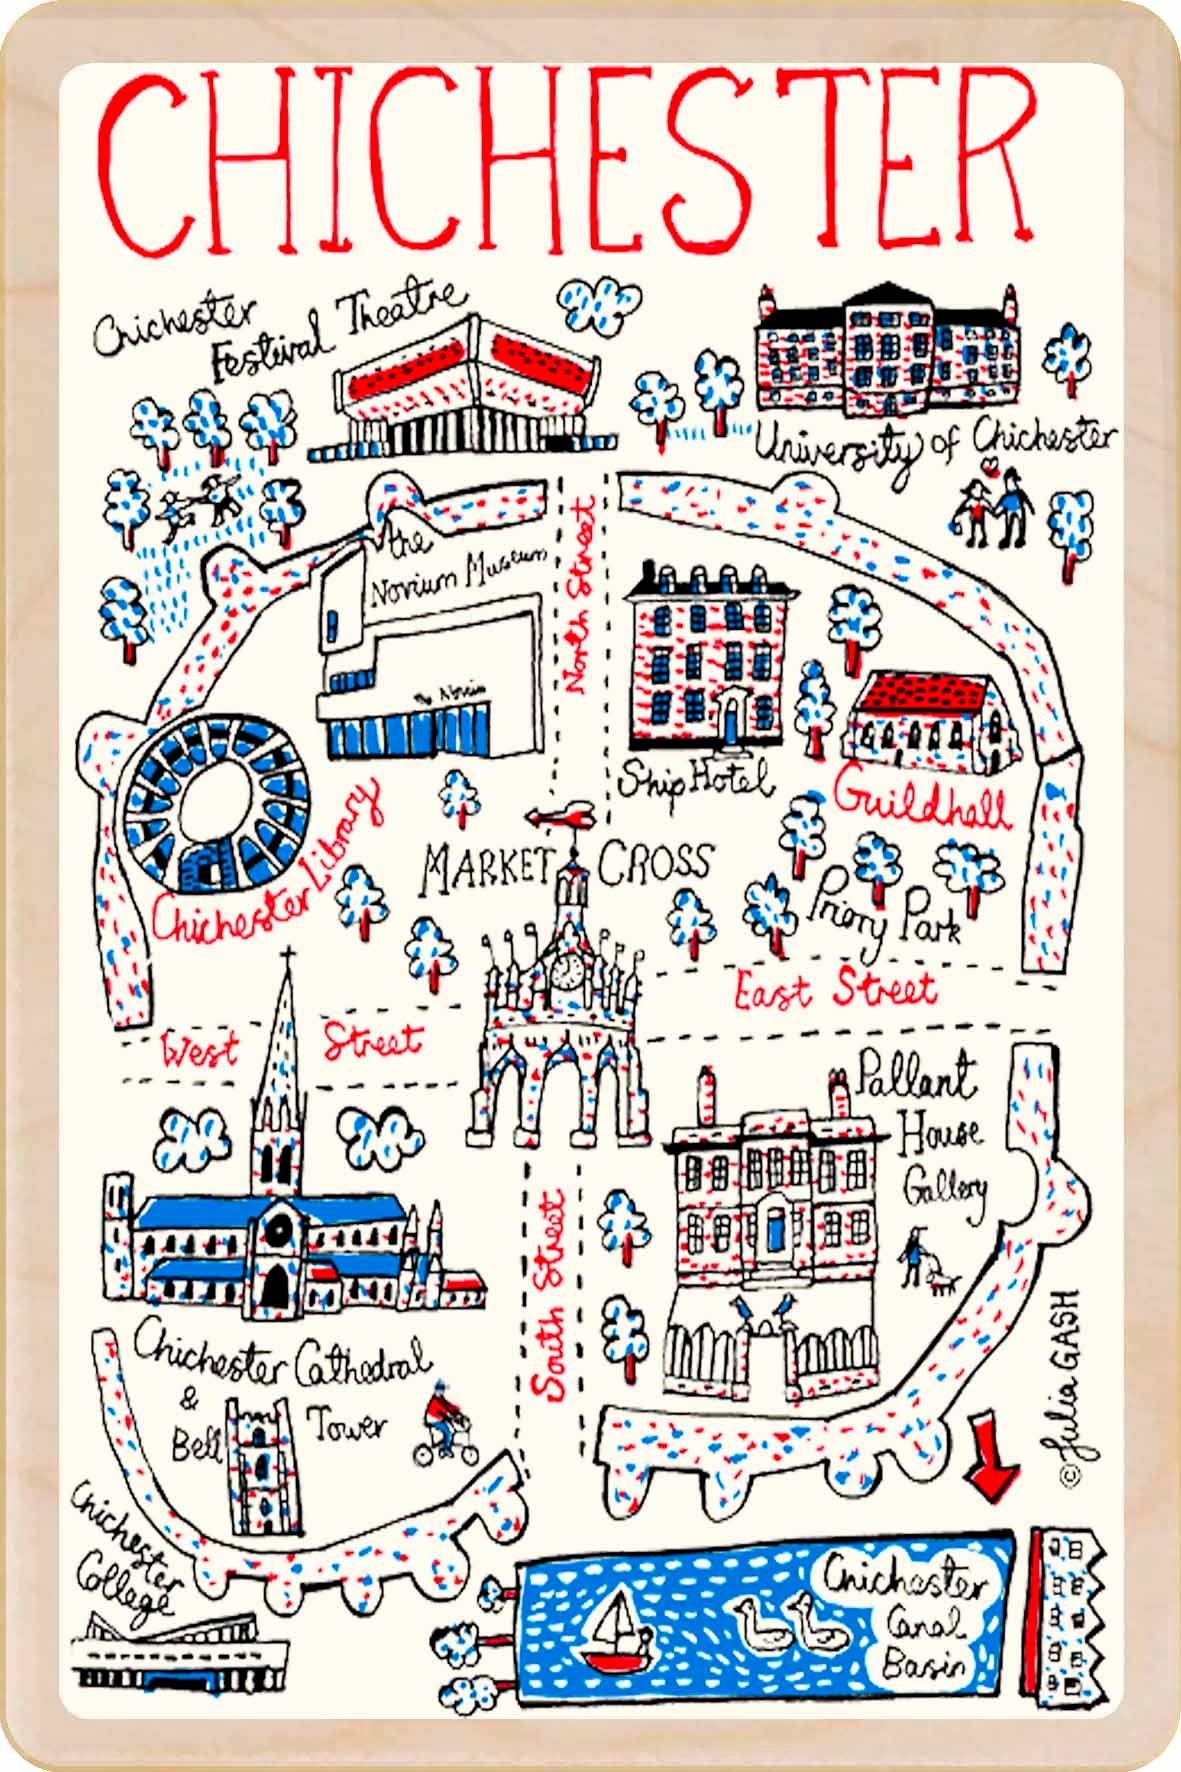 CHICHESTER
Chichester
Festival Theatre
University of Chichester
the
Novium Museum
the Novium
North Street
Ship Hotel
Guildhall
Chichester Library
MARKET CROSS
Priory Park
East Street
West Street
Pallant
House
Gallery
South Street
Chichester Cathedral
&
Bell Tower
© Julia GASH
Chichester
College
Chichester
Canal
Basin